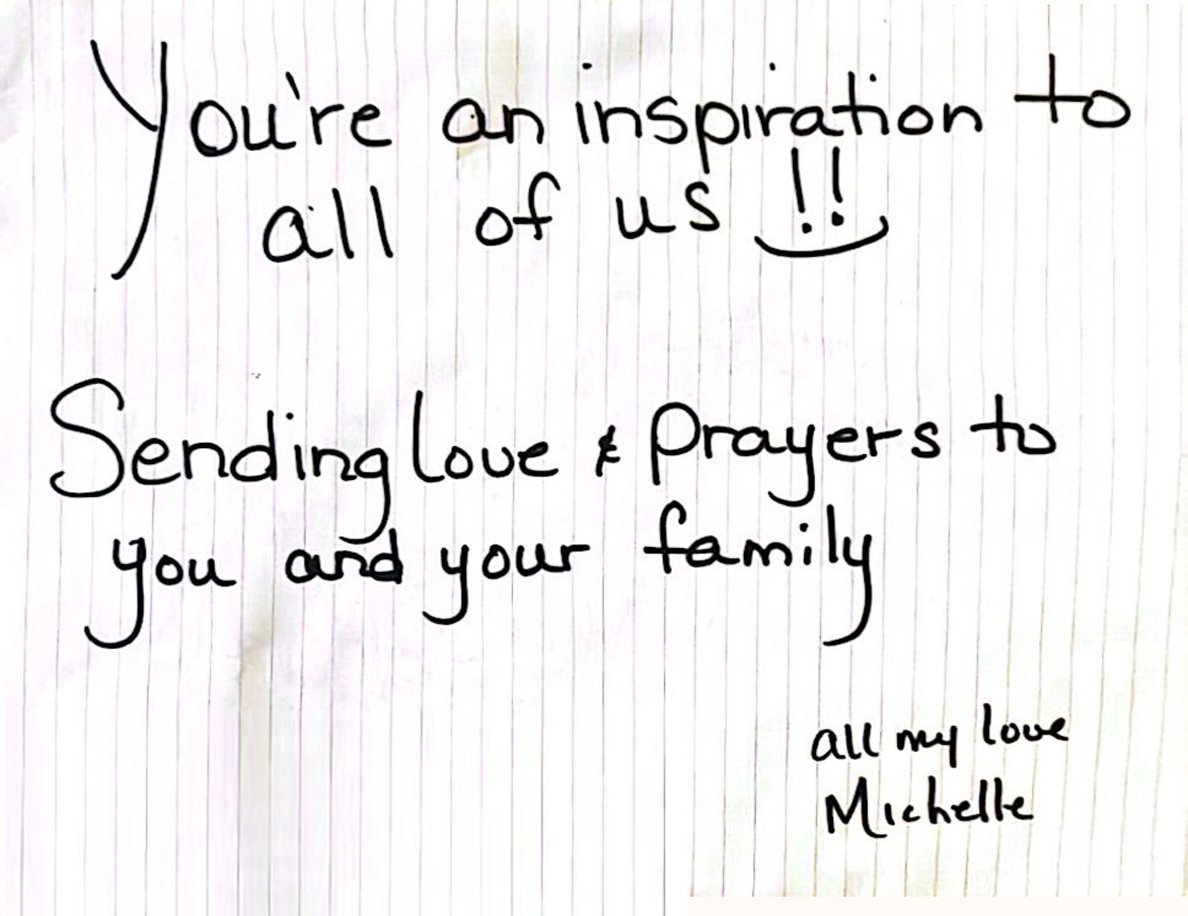 You're an inspiration to
all of us !!
Sending love & Prayers to
you and your family
all my love
Michelle